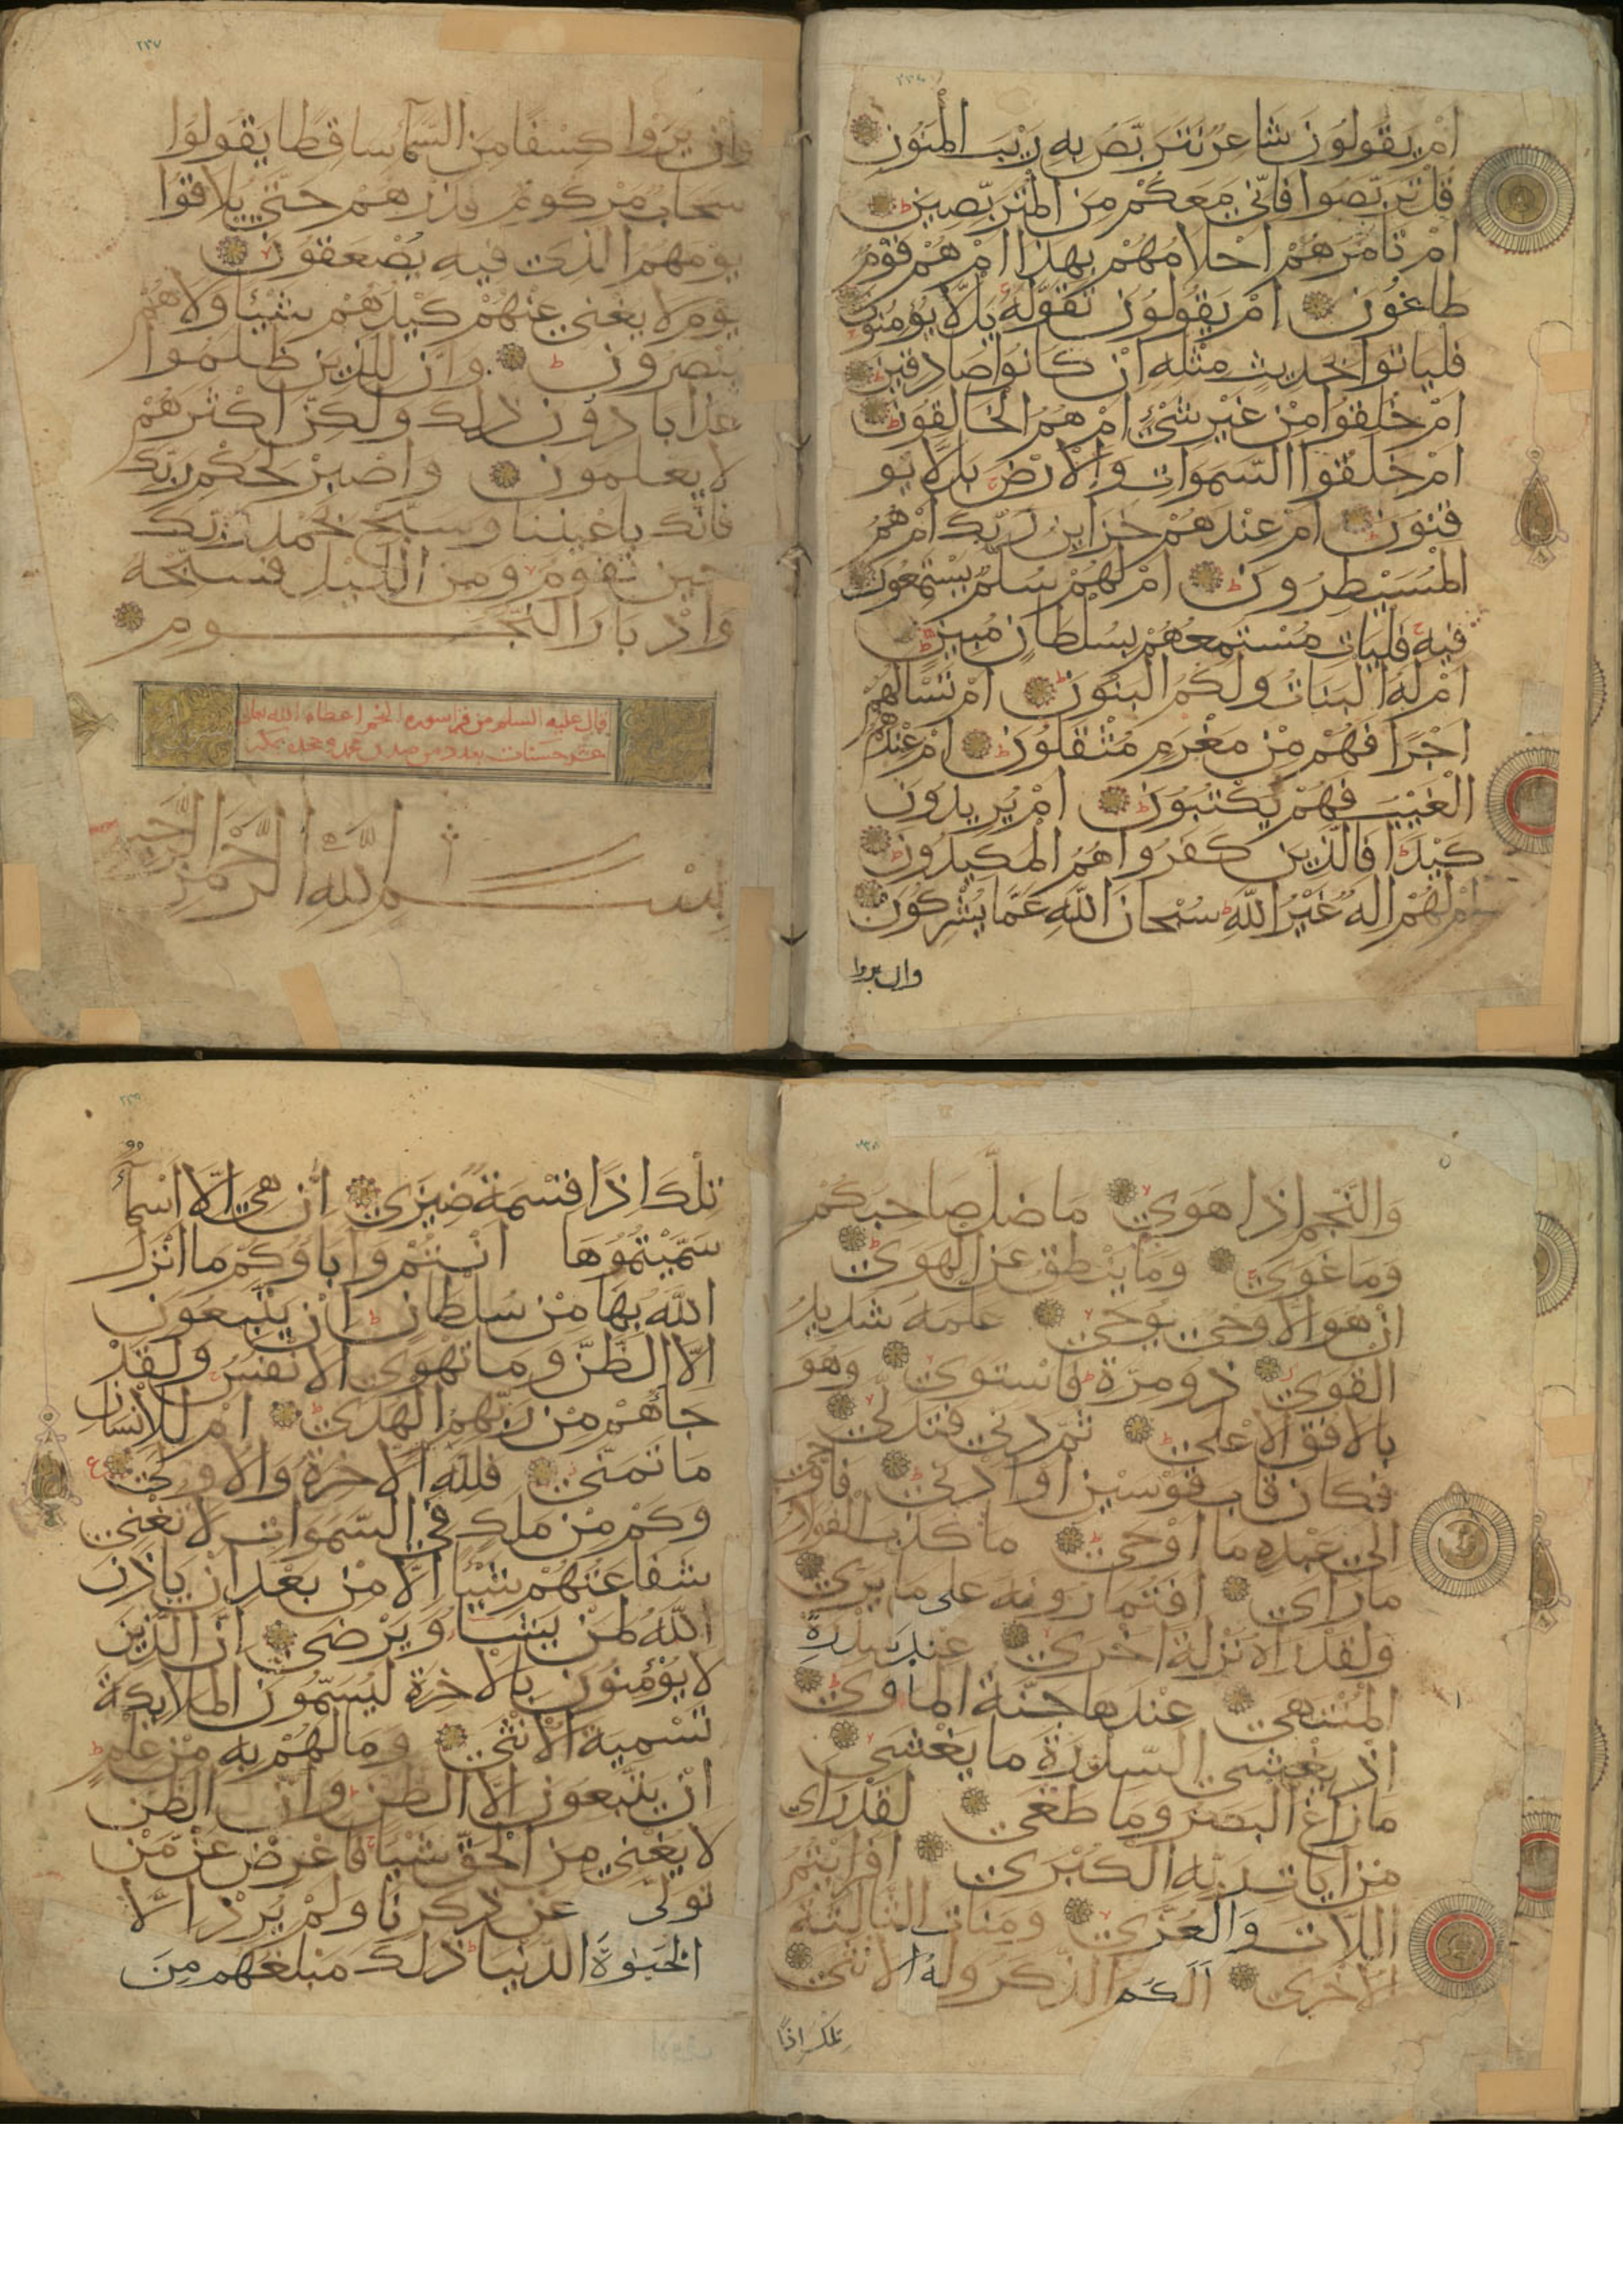 ٢٣٦
أَمْ يَقُولُونَ شَاعِرٌ نَتَرَبَّصُ بِهِ رَيْبَ الْمَنُونِ
قُلْ تَرَبَّصُوا فَإِنِّي مَعَكُمْ مِنَ الْمُتَرَبِّصِينَ
اَمْ تَامُرُهُمْ اَحْلَامُهُمْ بِهَذَا اَمْ هُمْ قَوْمٌ
طَاغُونَ اَمْ يَقُولُونَ تَقَوَّلَهُ بَل لَّا يُؤمِنُونَ
فليَاتوا بحَدِيثٍ مِثْلِهِ اِنْ كَانُوا صَادِقِينَ
اَمْ خُلِقُوا مِنْ غَيْرِ شَيْءٍ اَمْ هُمُ الْخَالِقُونَ
اَمْ خَلَقُوا السَّمَوَاتِ وَالْاَرْضَ بَل لَّا يُو
قِنُونَ اَمْ عِنْدَهُمْ خَزَاينُ رَبِّكَ اَمْ هُمُ
الْمُسَيْطِرُونَ اَمْ لَهُمْ سُلَّمٌ يَسْتَمِعُونَ
فِيهِ فَليَاتِ مُسْتَمِعُهُمْ بِسُلْطَانٍ مُبِينٍ
اَمْ لَهُ الْبَنَاتُ وَلَكُمُ الْبَنُونَ اَمْ تَسْالُهُمْ
اَجْرًا فَهُمْ مِنْ مَغْرَمٍ مُثْقَلُونَ اَمْ عِنْدَهُمُ
الْغَيْبُ فَهُمْ يَكْتُبُونَ اَمْ يُرِيدُونَ
كَيْدًا فَالَّذِينَ كَفَرُوا هُمُ الْمَكِيدُونَ
اَمْ لَهُمْ اِلهٌ غَيْرُ اللهِ سُبْحَانَ اللهِ عَمَّا يُشْرِكُونَ
وان يروا
٢٣٧
وَاِنْ يَرَوْا كِسْفًا مِنَ السَّمَآءِ سَاقِطًا يَقُولُوا
سَحَابٌ مَرْكُومٌ فَذَرْهُمْ حَتَّى يُلَاقُوا
يَوْمَهُمُ الَّذِي فِيهِ يُصْعَقُونَ
يَوْمَ لَا يُغْنِي عَنْهُمْ كَيْدُهُمْ شَيْئًا وَلَا هُمْ
يُنْصَرُونَ وَاِنَّ لِلَّذِينَ ظَلَمُوا
عَذَابًا دُونَ ذَلِكَ وَلَكِنَّ اَكْثَرَهُمْ
لَا يَعْلَمُونَ وَاصْبِرْ لِحُكْمِ رَبِّكَ
فَاِنَّكَ بِاَعْيُنِنَا وَسَبِّحْ بِحَمْدِ رَبِّكَ
حِينَ تَقُومُ وَمِنَ اللَّيْلِ فَسَبِّحْهُ
وَاِدْبَارَ النُّجُومِ
قال عليه السلم من قرا سورة النجم اعطاه الله تعالى
عشر حسنات بعدد من صدق بمحمد وجحد به بمكة
بِسْمِ اللهِ الرَّحْمَنِ الرَّحِيمِ
٢٣٨
وَالنَّجْمِ اِذَا هَوَى مَا ضَلَّ صَاحِبُكُمْ
وَمَا غَوَى وَمَا يَنْطِقُ عَنِ الْهَوَى
اِنْ هُوَ اِلَّا وَحْيٌ يُوحَى عَلَّمَهُ شَدِيدُ
الْقُوَى ذُو مِرَّةٍ فَاسْتَوَى وَهُوَ
بِالْاُفُقِ الْاَعْلَى ثُمَّ دَنَى فَتَدَلَّى
فَكَانَ قَابَ قَوْسَيْنِ اَوْ اَدْنَى فَاَوْحَى
اِلَى عَبْدِهِ مَا اَوْحَى مَا كَذَبَ الْفُؤَادُ
مَا رَاَى اَفَتُمَارُونَهُ عَلَى مَا يَرَى
وَلَقَدْ رَاَهُ نَزْلَةً اُخْرَى عِنْدَ سِدْرَةِ
الْمُنْتَهَى عِنْدَهَا جَنَّةُ الْمَاْوَى
اِذْ يَغْشَى السِّدْرَةَ مَا يَغْشَى
مَا زَاغَ الْبَصَرُ وَمَا طَغَى لَقَدْ رَاَى
مِنْ اَيَاتِ رَبِّهِ الْكُبْرَى اَفَرَاَيْتُمُ
اللَّاتَ وَالْعُزَّى وَمَنَاتَ الثَّالِثَةَ
الْاُخْرَى اَلَكُمُ الذَّكَرُ وَلَهُ الْاُنْثَى
تلك اذًا
٢٣٩
تِلْكَ اِذًا قِسْمَةٌ ضِيزَى اِنْ هِيَ اِلَّا اَسْمَآءٌ
سَمَّيْتُمُوهَا اَنْتُمْ وَاَبَاؤُكُمْ مَا اَنْزَلَ
اللهُ بِهَا مِنْ سُلْطَانٍ اِنْ يَتَّبِعُونَ
اِلَّا الظَّنَّ وَمَا تَهْوَى الْاَنْفُسُ وَلَقَدْ
جَاءَهُمْ مِنْ رَبِّهِمُ الْهُدَى اَمْ لِلْاِنْسَانِ
مَا تَمَنَّى فَلِلَّهِ الْاَخِرَةُ وَالْاُولَى
وَكَمْ مِنْ مَلَكٍ فِي السَّمَوَاتِ لَا تُغْنِي
شَفَاعَتُهُمْ شَيْئًا اِلَّا مِنْ بَعْدِ اَنْ يَاذَنَ
اللهُ لِمَنْ يَشَاءُ وَيَرْضَى اِنَّ الَّذِينَ
لَا يُؤْمِنُونَ بِالْاَخِرَةِ لَيُسَمُّونَ الْمَلَايِكَةَ
تَسْمِيَةَ الْاُنْثَى وَمَا لَهُمْ بِهِ مِنْ عِلْمٍ
اِنْ يَتَّبِعُونَ اِلَّا الظَّنَّ وَاِنَّ الظَّنَّ
لَا يُغْنِي مِنَ الْحَقِّ شَيْئًا فَاَعْرِضْ عَنْ مَنْ
تَوَلَّى عَنْ ذِكْرِنَا وَلَمْ يُرِدْ اِلَّا
الْحَيَوةَ الدُّنْيَا ذَلِكَ مَبْلَغُهُمْ مِنَ